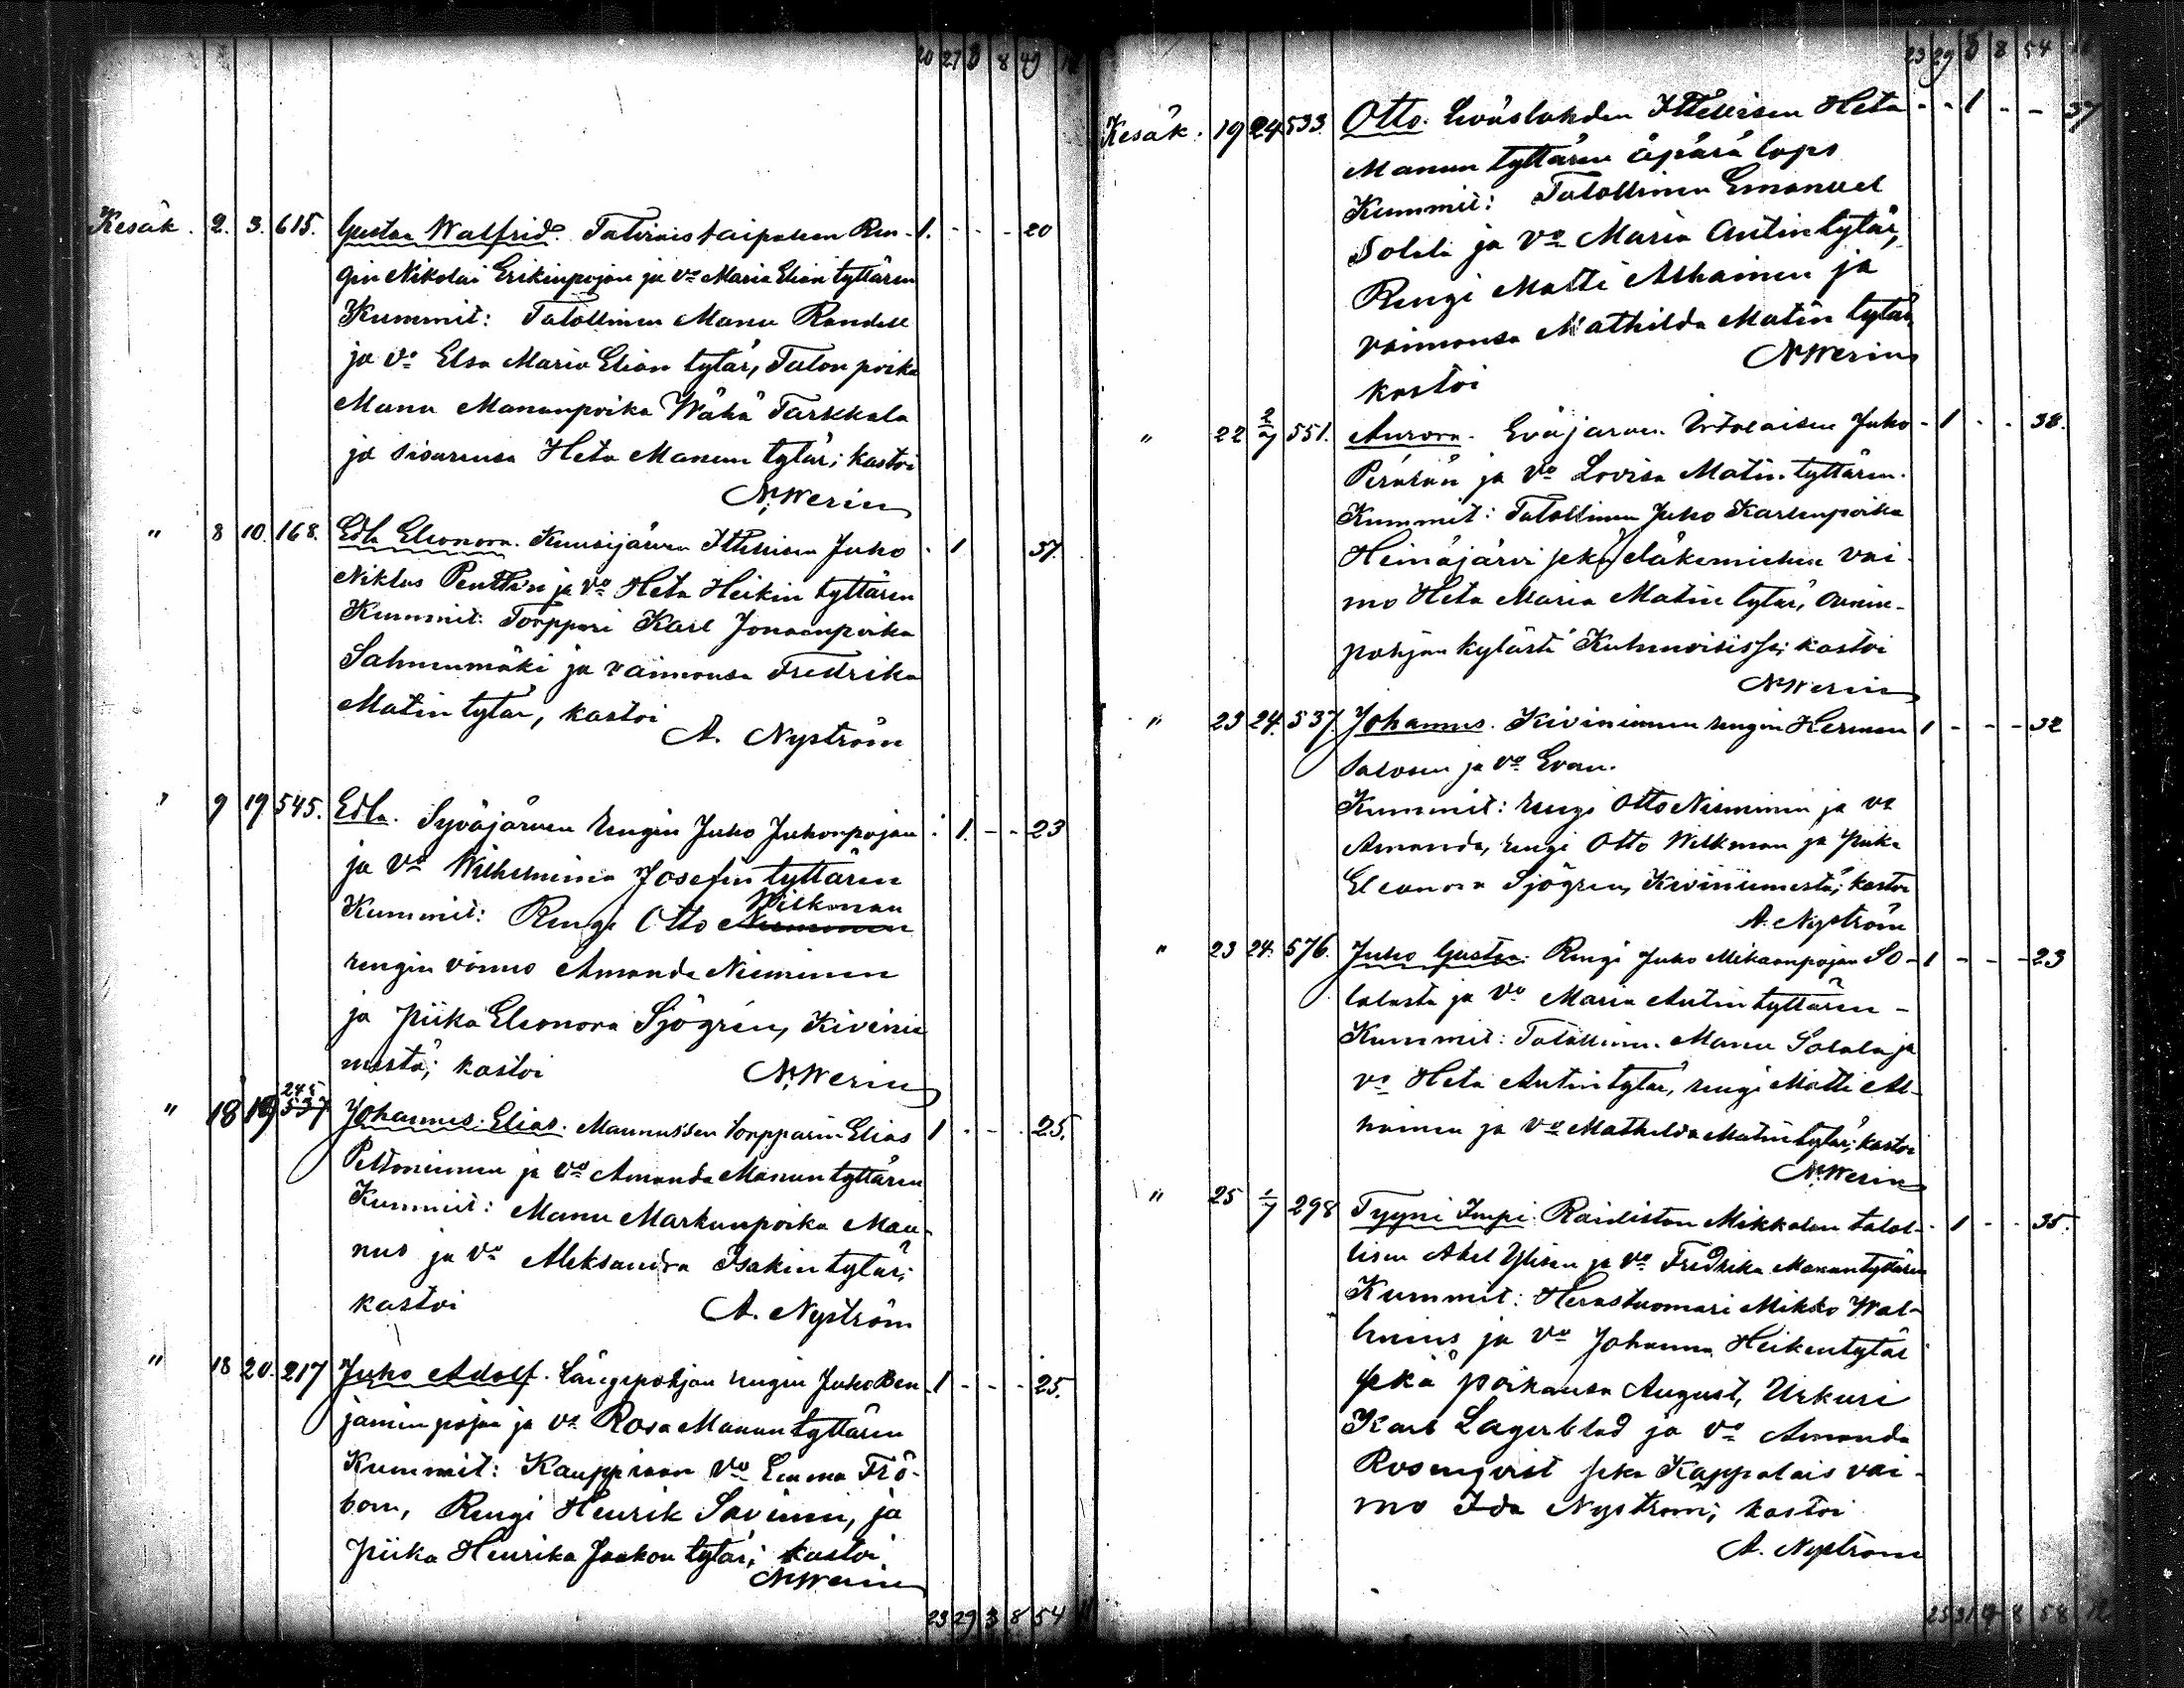 20 27 3 8 49
Kesäk. 2. 3. 615. Gustav Walfrid. Talviaistaipaleen Ren- 1. - - - 20
gin Nikolai Erikinpojan ja vo Maria Elian tyttären
Kummit: Talollinen Manu Randell
ja vo Elsa Maria Elian tytär, Talon poika
Manu Manunpoika Wähä Tarkkala
ja sisarensa Heta Manun tytär; kastoi
N. Werin
" 8 10. 168. Edla Eleonora. Kuusijärven Itsellisen Juho - 1 37.
Niklas Penttin ja vo Heta Heikin tyttären
Kummit: Torppari Karl Jonaanpoika
Salmenmäki ja vaimonsa Fredrika
Matin tytär, kastoi
A. Nyström
" 9 19 545. Edla. Syväjärven rengin Juho Juhonpojan - 1. - - 23
ja vo Wilhelmina Josefin tyttären
Wilkman
Kummit: Rengi Otto Nieminen
rengin vaimo Amanda Nieminen
ja piika Eleonora Sjögren, Kivinie
mestä; kastoi N. Werin
245
" 18 19 537 Johannes Elias. Maunussen torpparin Elias 1 - - - 25.
Peltoniemen ja vo Amanda Manun tyttären
Kummit: Manu Markunpoika Mau-
nus ja vo Aleksandra Isakin tytär;
kastoi A. Nyström
" 18 20. 217 Juho Adolf. Längepohjan rengin Juho Ben 1 - - - 25.
jamin pojan ja vo Rosa Manun tyttären
Kummit: Kauppiaan vo Emma Frö-
bom, Rengi Henrik Savinen, ja
piika Henrika Jaakon tytär; kastoi
N. Werin
23 29 3 8 54 11
23 29 3 8 54
Kesäk. 19 24 533. Otto. Leväslahden Itsellisen Heta - - 1 - - 37
Manun tyttären äpärä laps
Kummit: Talollinen Emanuel
Solala ja vo Maria Antintytär,
Rengi Matti Alhainen ja
vaimonsa Mathilda Matin tytär,
N. Werin
kastoi
" 22 2/7 551. Aurora. Eväjärven Irtolaisen Juho - 1 - - 38.
Perälän ja vo Lovisa Matin tyttären.
Kummit: Talollinen Juho Karlenpoika
Heinäjärvi sekä eläkemiehen vai-
mo Heta Maria Matin tytär,
pohjan kylästä Kuhmoisissa; kastoi
N. Werin
" 23 24. 537. Johannes. Kiviniemen rengin Herman 1 - - - 32
Salosen ja vo Evan.
Kummit: rengi Otto Nieminen ja vo
Amanda, rengi Otto Wilkman ja piika
Eleonora Sjögren, Kiviniemestä; kastoi
A. Nyström
" 23 24. 576. Juho Gustav. Rengi Juho Mikaanpojan So- 1 - - - 23
lalasta ja vo Maria Antin tyttären -
Kummit: Talollinen Manu Solala ja
vo Heta Antin tytär, rengi Matti Al-
hainen ja vo Mathilda Matin tytär; kastoi
N. Werin
" 25 1/7 298 Tyyni Impi. Raidiston Mikkolan talol- - 1 - - 35.
lisen Akel Ylisen ja vo Fredrika Manuntyttären
Kummit: Herastuomari Mikko Wal-
lenius ja vo Johanna Heikentytär
sekä poikansa August, Urkuri
Karl Lagerblad ja vo Amanda
Rosenqvist seka Kappalais vai-
mo Ida Nystrom; kastoi
A. Nyström
25 31 4 8 58 12